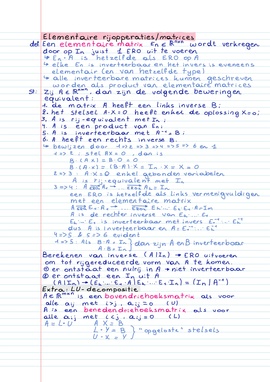 Elementaire rijoperaties/matrices
def Een elementaire matrix En ∈ ℝⁿˣⁿ wordt verkregen
door op In juist 1 ERO uit te voeren
↳ En · A is hetzelfde als ERO op A
↳ elke En is inverteerbaar en het invers is eveneens
elementair (en van hetzelfde type)
↳ alle inverteerbare matrices kunnen geschreven
worden als product van elementaire matrices
St. Zij A ∈ ℝⁿˣⁿ, dan zijn de volgende beweringen
equivalent:
1. de matrix A heeft een links inverse B;
2. het stelsel A·X=0 heeft enkel de oplossing X=0;
3. A is rij-equivalent met In;
4. A is een product van En;
5. A is inverteerbaar met A⁻¹ = B;
6. A heeft een rechts inverse.
↳ Bewijzen door 1→2→3→4→5→6 en
1→2: stel AX=0, dan is
B·(AX) = B·0 = 0
B·(AX) = (B·A)·X = In·X = X = 0
2→3: A·X=0 enkel gebonden variabelen
A is rij-equivalent met In
3→4:
een ERO is hetzelfde als links vermenigvuldigen
met een elementaire matrix
A is de rechter inverse van
is inverteerbaar met invers
dus A is inverteerbaar en A =
4→5 & 5→6 evident
Als B·A = In dan zijn A en B inverteerbaar
A·B = In
Berekenen van inverse (A|In) → ERO uitvoeren
om tot rijgereduceerde vorm van A te komen.
① er ontstaat een nulrij in A → niet inverteerbaar
② er ontstaat een In uit A
(A|In) → (Ek...E1·A|Ek...E1·In) = (In|A⁻¹)
Extra: LU-decompositie
A ∈ ℝⁿˣⁿ is een bovendriehoeksmatrix als voor
alle aij met i>j, aij=0 (U)
A is een benedendriehoeksmatrix als voor
alle aij met i<j, aij=0 (L)
A = L·U A·X = B
L·Y = B "opgeloste" stelsels
U·X = Y